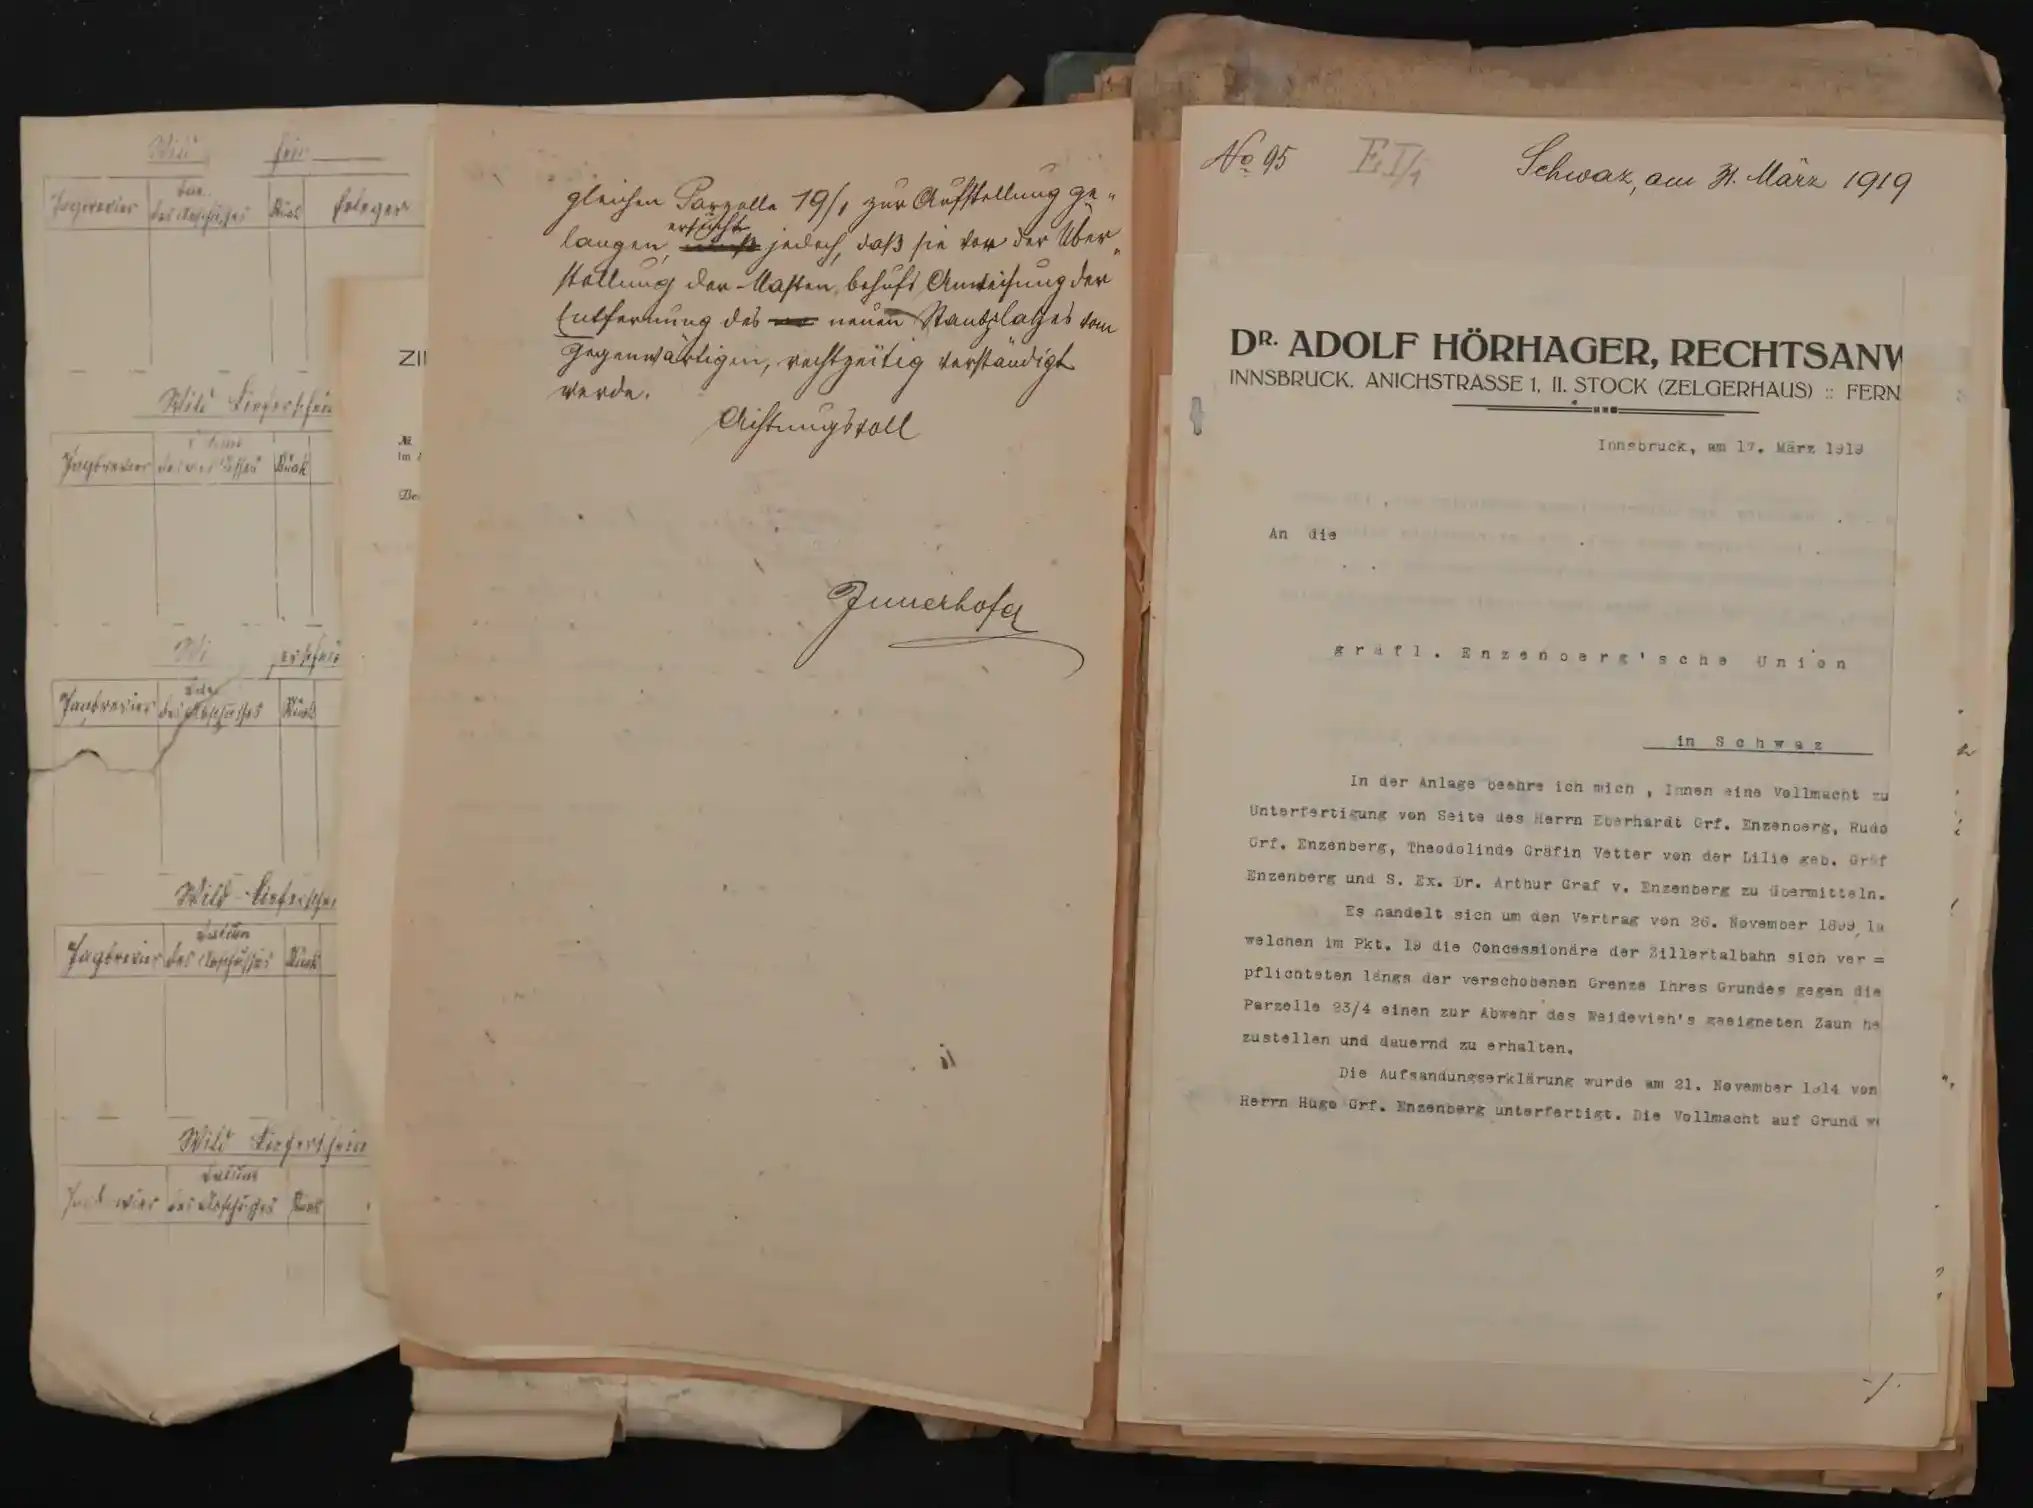 Wild
Jagdrevier des Abschußes Stück Erleger
Wild Lieferschein
Jagdrevier des Abschußes Stück
Jagdrevier des Abschußes Stück
Wild-Lieferschei
Datum
Jagdrevier des Abschußes Stück
Wild Lieferschein
Datum
des Abschußes Stück
ZI
gleichen Parzelle 19/1 zur Aufstellung ge-
langen, ersucht jedoch, daß sie vor der Über-
stellung der Masten behufs Anweisung der
Entfernung des neuen Standplatzes vom
gegenwärtigen, rechtzeitig verständigt
werde.
Achtungsvoll
Innerhofer
No 95 E I/1 Schwaz, am 31. März 1919
DR. ADOLF HÖRHAGER, RECHTSANW
INNSBRUCK, ANICHSTRASSE 1, II. STOCK (ZELGERHAUS) :: FERN
Innsbruck, am 17. März 1919
An die
gräfl. Enzenberg'sche Union
in Schwaz
In der Anlage beehre ich mich , Ihnen eine Vollmacht zu
Unterfertigung von Seite des Herrn Eberhardt Grf. Enzenberg, Rudo
Grf. Enzenberg, Theodolinde Gräfin Vetter von der Lilie geb. Gräf
Enzenberg und S. Ex. Dr. Arthur Graf v. Enzenberg zu übermitteln.
Es handelt sich um den Vertrag von 26. November 1899, la
welchen im Pkt. 19 die Concessionäre der Zillertalbahn sich ver =
pflichteten längs der verschobenen Grenze Ihres Grundes gegen die
Parzelle 23/4 einen zur Abwehr des Weidevieh's geeigneten Zaun he
zustellen und dauernd zu erhalten.
Die Aufsandungserklärung wurde am 21. November 1914 von
Herrn Hugo Grf. Enzenberg unterfertigt. Die Vollmacht auf Grund we